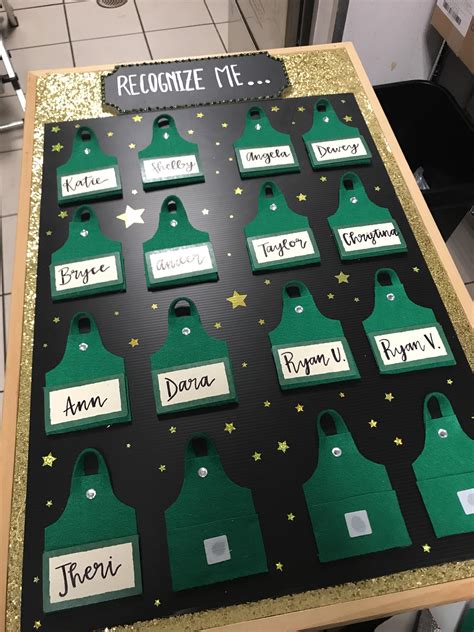 RECOGNIZE ME...
Katie
Shelby
Angela
Dewey
Bryce
Ander
Taylor
Christina
Ann
Dara
Ryan U.
Ryan V.
Jheri